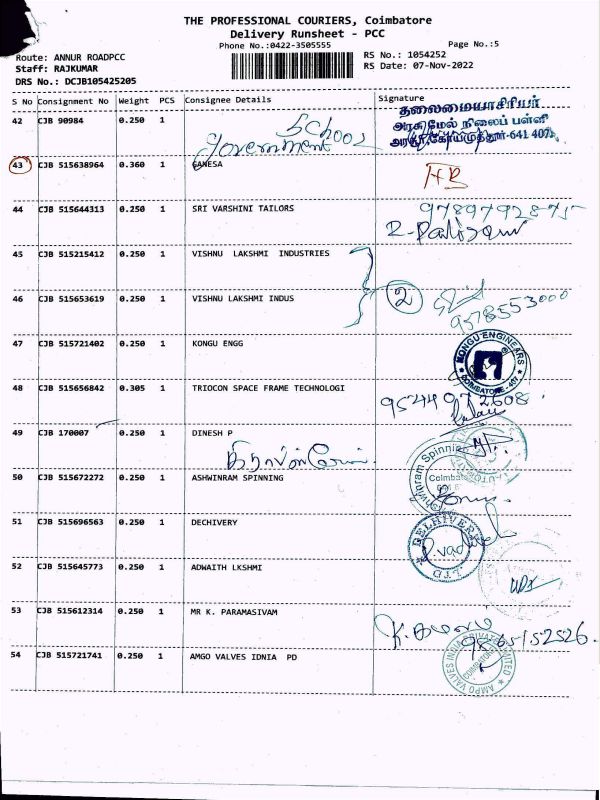 THE PROFESSIONAL COURIERS, Coimbatore
Delivery Runsheet - PCC
Phone No.:0422-3505555
Page No.:5
Route: ANNUR ROADPCC
RS No.: 1054252
Staff: RAJKUMAR
RS Date: 07-Nov-2022
DRS No.: DCJB105425205
S No Consignment No Weight PCS Consignee Details Signature
தலைமையாசிரியர்
42 CJB 90984 0.250 1 School
அரசு மேல் நிலைப் பள்ளி
Government
43 CJB 515638964 0.360 1 GANESA
44 CJB 515644313 0.250 1 SRI VARSHINI TAILORS
9789792875
45 CJB 515215412 0.250 1 VISHNU LAKSHMI INDUSTRIES
46 CJB 515653619 0.250 1 VISHNU LAKSHMI INDUS 2
9578553000
47 CJB 515721402 0.250 1 KONGU ENGG
KONGU ENGINEARS
48 CJB 515656842 0.305 1 TRIOCON SPACE FRAME TECHNOLOGI
49 CJB 170007 0.250 1 DINESH P
50 CJB 515672272 0.250 1 ASHWINRAM SPINNING
51 CJB 515696563 0.250 1 DECHIVERY
DELHIVERY LTD
52 CJB 515645773 0.250 1 ADWAITH LKSHMI
53 CJB 515612314 0.250 1 MR K. PARAMASIVAM
54 CJB 515721741 0.250 1 AMGO VALVES IDNIA PD
AMPO VALVES INDIA PRIVATE LIMITED
COIMBATORE